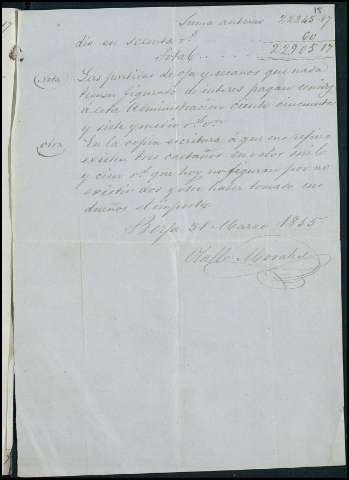 18
Suma anterior 22845-17
dio en sesenta r.s 60
Total 22905 17
Nota Las partidas de oja y granos que nada
tienen figurado de interes pagan
á esta Administracion ciento cincuenta
y siete y medio r.s
Otra En la copia escritura á que me refiero
existen tres castaños en dos mil
y cien r.s que hoy no figuran por no
existir dos y otro haver tomado sus
dueños el importe
Berja 31 Marzo 1855